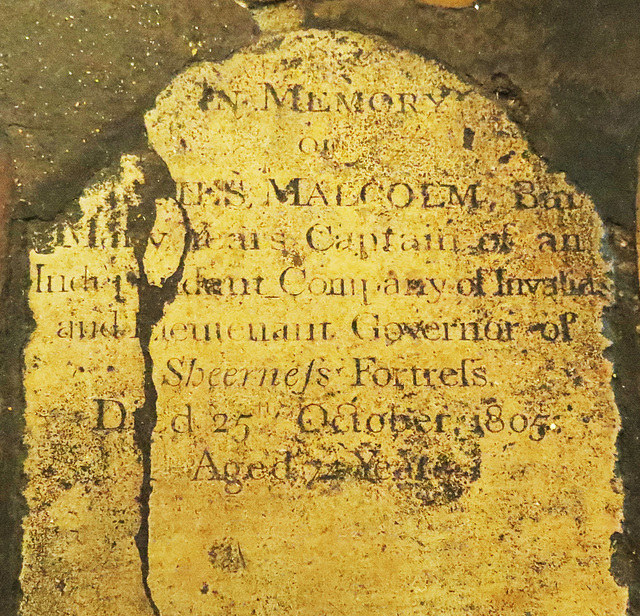 IN MEMORY
OF
MALCOLM, Bart
Many Years Captain of an
Independant Company of Invalids
and Lieutenant Governor of
Sheerneſs Fortreſs.
Died 25th October, 1805,
Aged 72 Years